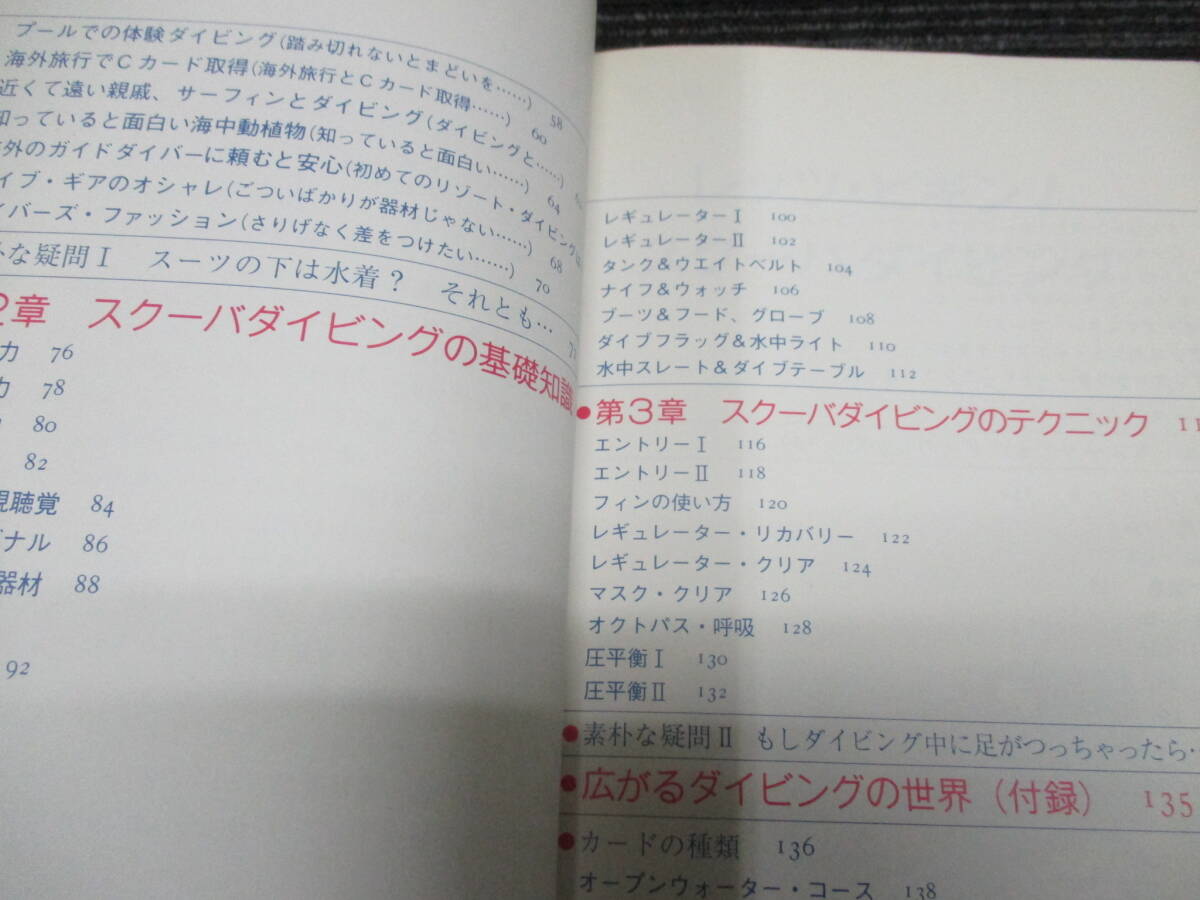 プールでの体験ダイビング(踏み切れないとまどいを……) 58
海外旅行でCカード取得(海外旅行とCカード取得……) 60
近くて遠い親戚、サーフィンとダイビング(ダイビングと……)
知っていると面白い海中動植物(知っていると面白い……) 64
外のガイドダイバーに頼むと安心(初めてのリゾート・ダイビング
イブ・ギアのオシャレ(ごついばかりが器材じゃない……) 68
イバーズ・ファッション(さりげなく差をつけたい……) 70
な疑問Ⅰ スーツの下は水着? それとも…
2章 スクーバダイビングの基礎知識
力 76
力 78
80
82
視聴覚 84
ナル 86
器材 88
92
レギュレーターⅠ 100
レギュレーターⅡ 102
タンク&ウエイトベルト 104
ナイフ&ウォッチ 106
ブーツ&フード、グローブ 108
ダイブフラッグ&水中ライト 110
水中スレート&ダイブテーブル 112
●第3章 スクーバダイビングのテクニック
エントリーⅠ 116
エントリーⅡ 118
フィンの使い方 120
レギュレーター・リカバリー 122
レギュレーター・クリア 124
マスク・クリア 126
オクトパス・呼吸 128
圧平衡Ⅰ 130
圧平衡Ⅱ 132
●素朴な疑問Ⅱ もしダイビング中に足がつっちゃったら
●広がるダイビングの世界(付録) 135
●カードの種類 136
オープンウォーター・コース 138